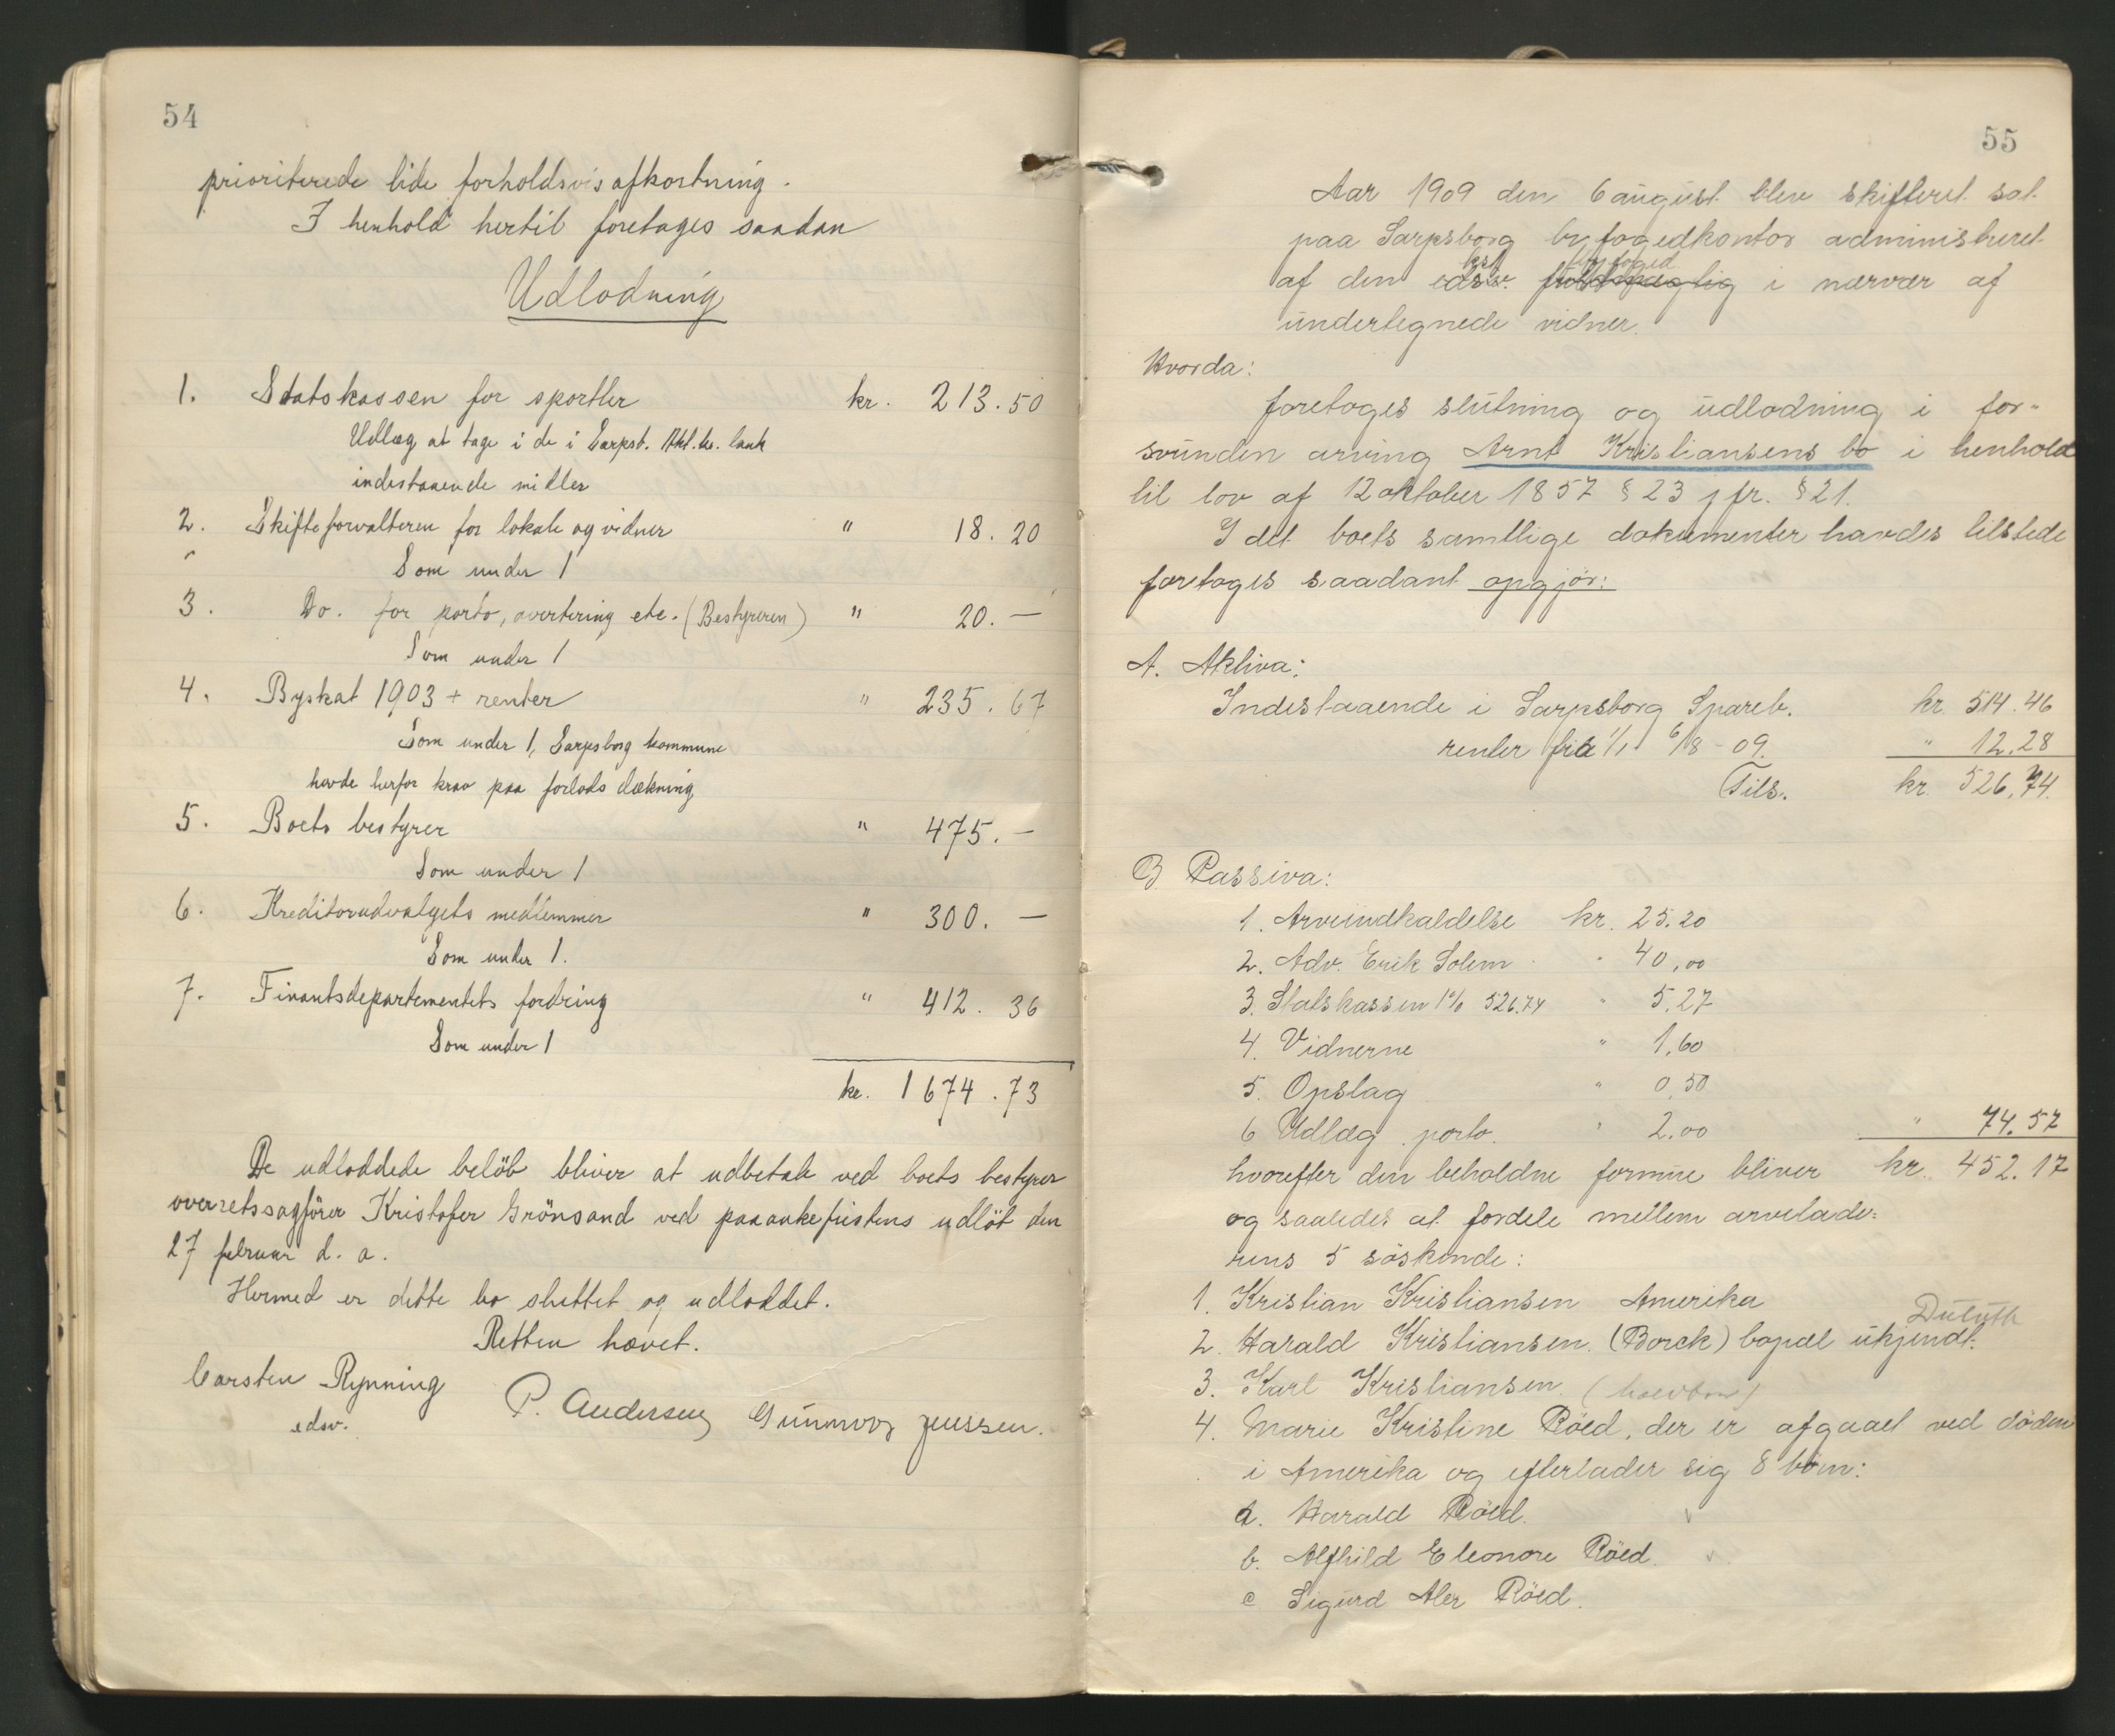 54
prioriterede lide forholdsvis afkortning.
I henhold hertil foretages saadan
Udlodning
1. Statskassen for sportler kr. 213.50
Udlæg at tage i de i Sarpsb. Akt. kr. bank
indestaaende midler
2. Skifteforvalteren for lokale og vidner " 18.20
Som under 1
3. Do. for porto, avertering etc. (Bestyreren) " 20.—
Som under 1
4. Byskat 1903 + renter " 235.67
Som under 1, Sarpsborg kommune
havde herfor krav paa forlods dækning
5. Boets bestyrer " 475.—
Som under 1
6. Kreditorudvalgets medlemmer " 300.—
Som under 1.
7. Finantsdepartementets fordring " 412.36
Som under 1
kr. 1674.73
De udloddede beløb bliver at udbetale ved boets bestyrer
overretssagfører Kristofer Grönsand ved paaankefristens udløb den
27 februar d. a.
Hermed er dette bo sluttet og udloddet.
Retten hævet.
Carsten Rynning
edsv.
P. Andersen Gunnvor Jenssen.
55
Aar 1909 den 6 august blev skifteret sat
paa Sarpsborg byfogedkontor administreret
kst byfoged
af den edsv. fuldmægtig i nærvær af
undertegnede vidner.
Hvorda:
foretoges slutning og udlodning i for-
svunden arving Arnt Kristiansens bo i henhold
til lov af 12 oktober 1857 § 23 jfr. § 21.
I det boets samtlige dokumenter havdes tilstede
foretoges saadant opgjör:
A. Aktiva:
Indestaaende i Sarpsborg Spareb. kr. 514.46
renter fra 1/1 6/8-09. " 12.28
Tils. kr. 526,74.
B. Passiva:
1. Arveindkaldelse kr. 25.20
2. Adv. Erik Solem " 40,00
3. Statskassen 1% 526.74 " 5.27
4. Vidnerne " 1,60
5. Opslag " 0,50
6 Udlæg porto. " 2.00 " 74.57
hvorefter den beholdne formue bliver kr. 452.17
og saaledes at fordele mellem arvelade-
rens 5 söskende:
1. Kristian Kristiansen Amerika
Duluth
2. Harald Kristiansen. (Borck) bopæl ukjendt.
3. Karl Kristiansen. (halvbror)
4. Marie Kristine Röed, der er afgaaet ved döden
i Amerika og efterlader sig 8 börn:
a. Harald Röed.
b. Alfhild Eleonore Röed.
c Sigurd Alex Röed.